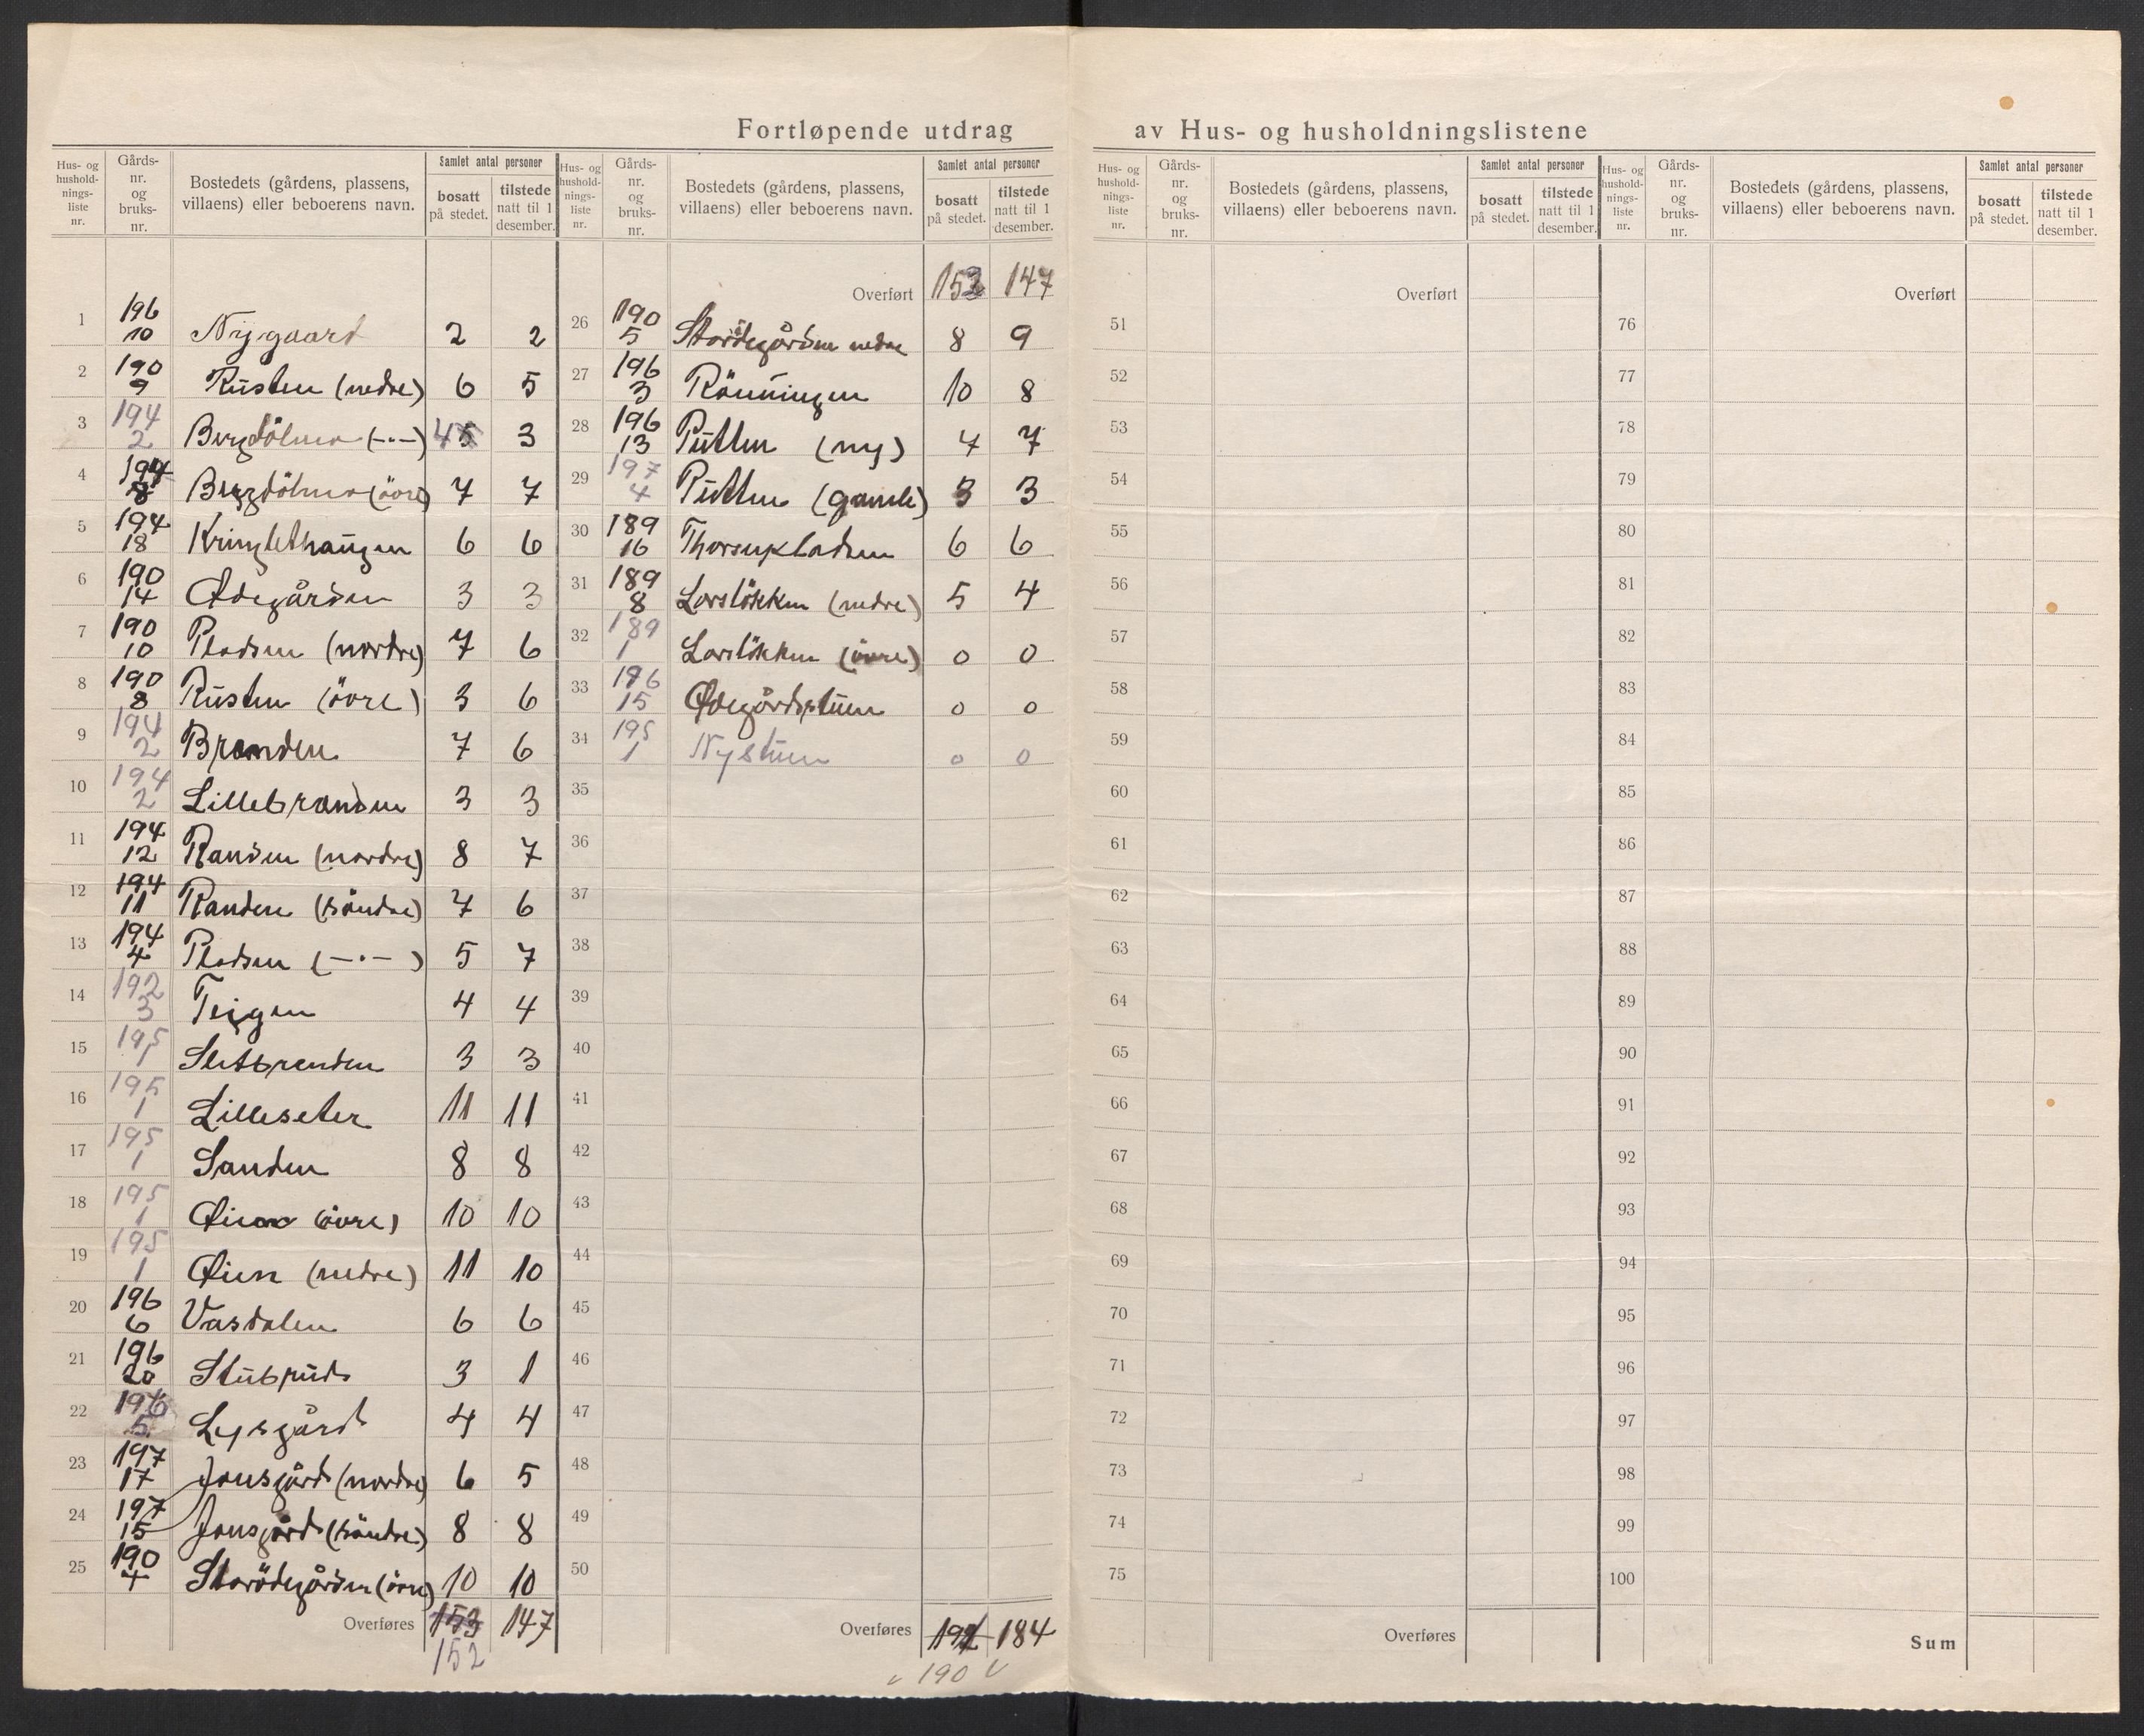 Fortløpende utdrag av Hus- og husholdningslistene
Hus- og hushold-nings-liste nr. | Gårds-nr. og bruks-nr. | Bostedets (gårdens, plassens, villaens) eller beboerens navn. | Samlet antal personer | bosatt på stedet. | tilstede natt til 1 desember.
1 | 196 10 | Nygaard | 2 | 2
2 | 190 9 | Rusten (nedre) | 6 | 5
3 | 194 2 | Bergdölmo (-"-) | 4 | 3
4 | 194 8 | Bergdölmo (övre) | 7 | 7
5 | 194 18 | Kringlethaugen | 6 | 6
6 | 190 14 | Ødegården | 3 | 3
7 | 190 10 | Pladsen (nordre) | 7 | 6
8 | 190 8 | Rusten (övre) | 3 | 6
9 | 194 2 | Branden | 7 | 6
10 | 194 2 | Lillebranden | 3 | 3
11 | 194 12 | Randen (nordre) | 8 | 7
12 | 194 11 | Randen (söndre) | 7 | 6
13 | 194 4 | Pladsen (-"-) | 5 | 7
14 | 192 3 | Teigen | 4 | 4
15 | 195 1 | Sletbrenden | 3 | 3
16 | 195 1 | Lilleseter | 11 | 11
17 | 195 1 | Sanden | 8 | 8
18 | 195 1 | Øien (övre) | 10 | 10
19 | 195 1 | Øien (nedre) | 11 | 10
20 | 196 6 | Vasdalen | 6 | 6
21 | 196 20 | Stubrud | 3 | 1
22 | 196 5 | Lysgård | 4 | 4
23 | 197 17 | Jonsgård (nordre) | 6 | 5
24 | 197 15 | Jonsgård (söndre) | 8 | 8
25 | 190 4 | Storödegården (övre) | 10 | 10
Overføres 153 147
152
Hus- og hushold-nings-liste nr. | Gårds-nr. og bruks-nr. | Bostedets (gårdens, plassens, villaens) eller beboerens navn. | Samlet antal personer | bosatt på stedet. | tilstede natt til 1 desember.
Overført 152 147
26 | 190 5 | Storödegården nedre | 8 | 9
27 | 196 3 | Rönningen | 10 | 8
28 | 196 13 | Putten (ny) | 4 | 7
29 | 197 4 | Putten (gamle) | 3 | 3
30 | 189 16 | Thorsenpladsen | 6 | 6
31 | 189 8 | Lorslökken (nedre) | 5 | 4
32 | 189 1 | Lorslökken (övre) | 0 | 0
33 | 196 15 | Ødegårdstuen | 0 | 0
34 | 195 1 | Nystuen | 0 | 0
35
36
37
38
39
40
41
42
43
44
45
46
47
48
49
50
Overføres 191 184
190
Hus- og hushold-nings-liste nr. | Gårds-nr. og bruks-nr. | Bostedets (gårdens, plassens, villaens) eller beboerens navn. | Samlet antal personer | bosatt på stedet. | tilstede natt til 1 desember.
Overført
51
52
53
54
55
56
57
58
59
60
61
62
63
64
65
66
67
68
69
70
71
72
73
74
75
Overføres
Hus- og hushold-nings-liste nr. | Gårds-nr. og bruks-nr. | Bostedets (gårdens, plassens, villaens) eller beboerens navn. | Samlet antal personer | bosatt på stedet. | tilstede natt til 1 desember.
Overført
76
77
78
79
80
81
82
83
84
85
86
87
88
89
90
91
92
93
94
95
96
97
98
99
100
Sum